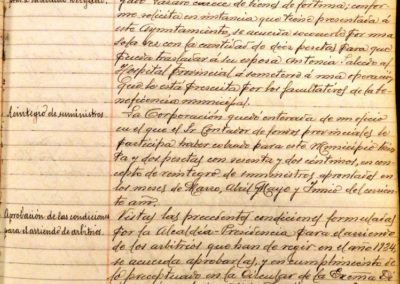 que carece de bienes de fortuna; confor-
me solicita en instancia que tiene presentada á
este Ayuntamiento, se acuerda socorrerlo por una
sola vez con la cantidad de diez pesetas para que
pueda trasladar á su esposa Antonia al
Hospital provincial á someterse á una operación
que le está prescrita por los facultativos de la be-
neficencia municipal.
Reintegro de suministros
La Corporación quedó enterada de un oficio
en el que el Sr Contador de fondos provinciales le
participa haber cobrado para este Municipio
ta y dos pesetas con setenta y dos céntimos, en con-
cepto de reintegro de suministros aprontados en
los meses de Marzo, Abril Mayo y Junio del corrien-
te año.
Aprobación de las condiciones
para el arriendo de arbitrios.
Vistas las precedentes condiciones formuladas
por la Alcaldía-Presidencia para el arriendo
de los arbitrios que han de regir en el año
se acuerda aprobarlas, y en cumplimiento de
lo preceptuado en la Circular de la Excma Di-